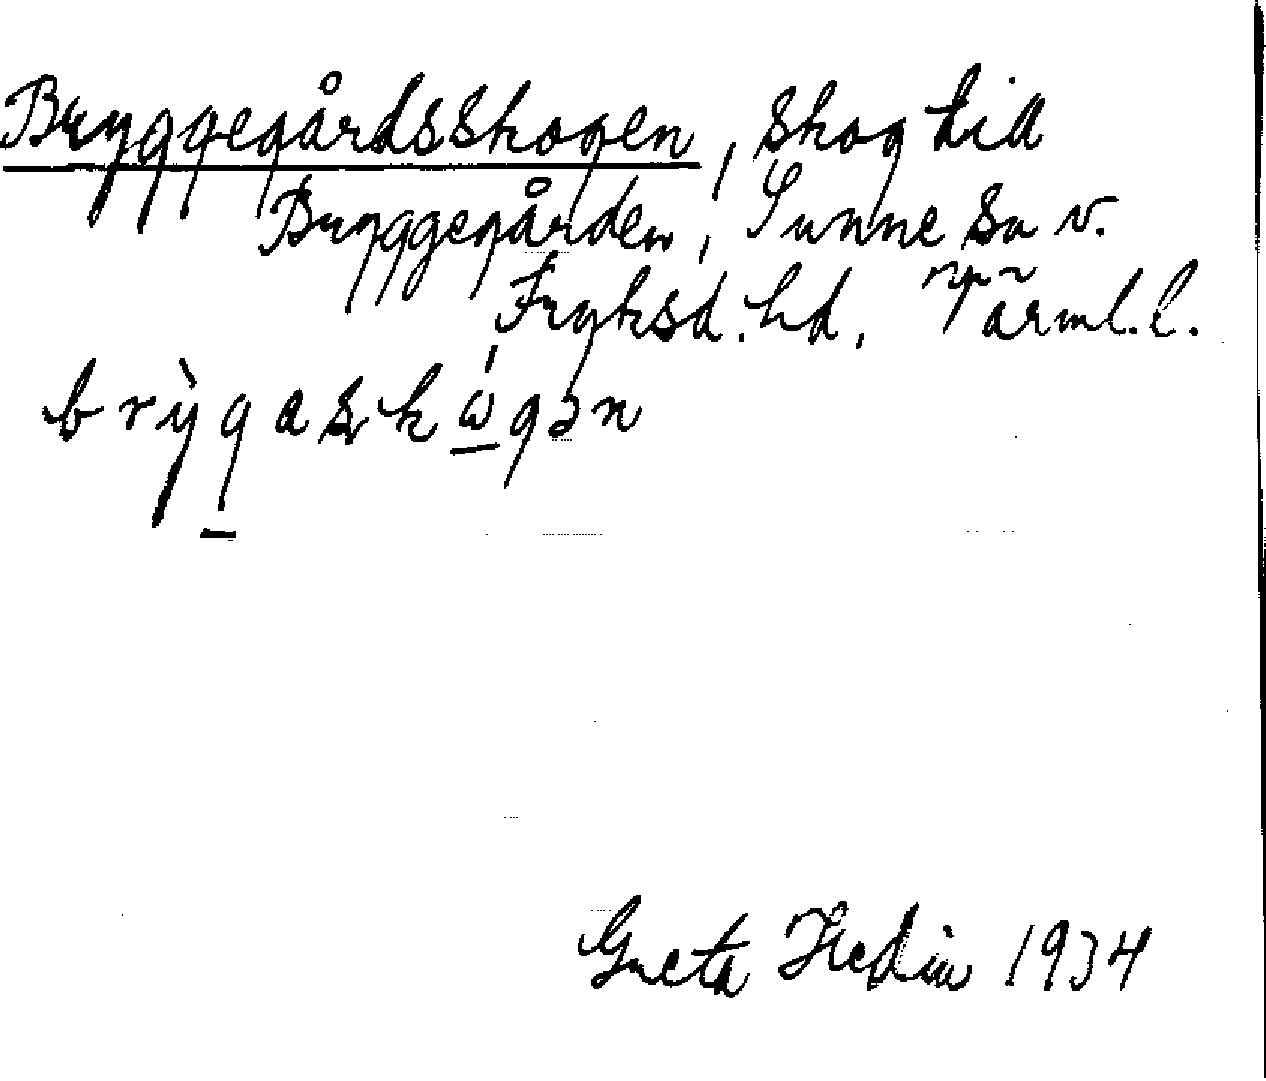 Bryggegårdsskogen, skog till
Bryggegården, Sunne sn v.
Fryksd. hd, Värml. l.
brỳgaskωgən
Greta Hedin 1934